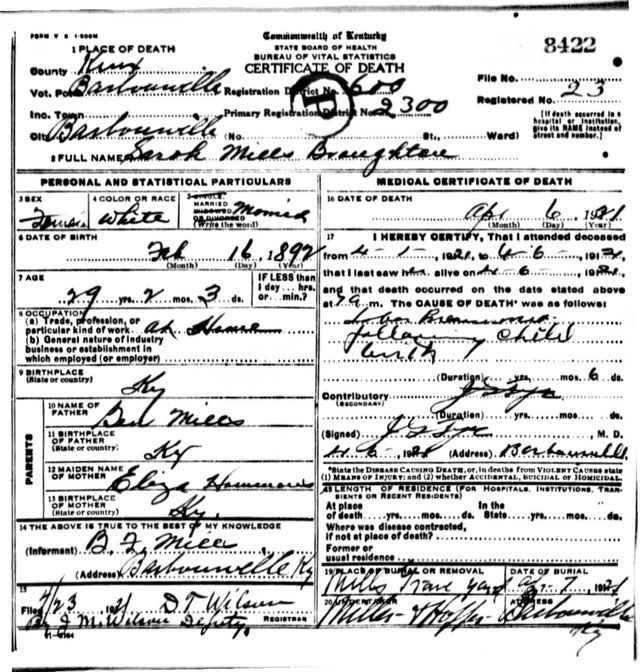 FORM V S 1-500M
Commonwealth of Kentucky
STATE BOARD OF HEALTH
BUREAU OF VITAL STATISTICS
CERTIFICATE OF DEATH
8422
1 PLACE OF DEATH
County Knox
File No. 23
Vot. Pct. Barbourville Registration District No. 600
Registered No.
Inc. Town Primary Registration District No. 2300
[If death occurred in a hospital or institution, give its NAME instead of street and number.]
City Barbourville (No. St., Ward)
2 FULL NAME Sarah Mills Broughton
PERSONAL AND STATISTICAL PARTICULARS
3 SEX Female
4 COLOR OR RACE White
5 SINGLE, MARRIED WIDOWED OR DIVORCED (Write the word) Married
6 DATE OF BIRTH
Feb 16, 1892
(Month) (Day) (Year)
7 AGE
29 yrs. 2 mos. 3 ds.
IF LESS than 1 day... hrs. or... min.?
8 OCCUPATION
(a) Trade, profession, or
particular kind of work at Home
(b) General nature of industry
business or establishment in
which employed (or employer)
9 BIRTHPLACE
(State or country) Ky
PARENTS
10 NAME OF FATHER Ben Mills
11 BIRTHPLACE OF FATHER (State or country) Ky
12 MAIDEN NAME OF MOTHER Eliza Hammons
13 BIRTHPLACE OF MOTHER (State or country) Ky.
14 THE ABOVE IS TRUE TO THE BEST OF MY KNOWLEDGE
(Informant) B. F. Mills
(Address) Barbourville Ky
15
Filed 4/23 1921 D.T. Wilson
By J. M. Wilson Deputy. REGISTRAR
MEDICAL CERTIFICATE OF DEATH
16 DATE OF DEATH
Apr 6, 1921
(Month) (Day) (Year)
17 I HEREBY CERTIFY, That I attended deceased
from 4-1-1921, to 4-6-1921,
that I last saw her alive on 4-6-1921,
and that death occurred on the date stated above
at 7 a m. The CAUSE OF DEATH* was as follows:
Lobar Pneumonia
following Child
birth
(Duration) yrs. mos. 6 ds.
Contributory (SECONDARY)
(Duration) yrs. mos. ds.
(Signed) , M. D.
4-6-1921 (Address) Barbourville
*State the DISEASE CAUSING DEATH, or, in deaths from VIOLENT CAUSES state
(1) MEANS OF INJURY; and (2) whether ACCIDENTAL, SUICIDAL or HOMICIDAL.
18 LENGTH OF RESIDENCE (FOR HOSPITALS, INSTITUTIONS, TRANSIENTS OR RECENT RESIDENTS)
At place of death yrs. mos. ds. In the State yrs. mos. ds.
Where was disease contracted,
if not at place of death?
Former or
usual residence
19 PLACE OF BURIAL OR REMOVAL Mills Grave yard
DATE OF BURIAL 7-1921
20 UNDERTAKER
ADDRESS Barbourville
Ky